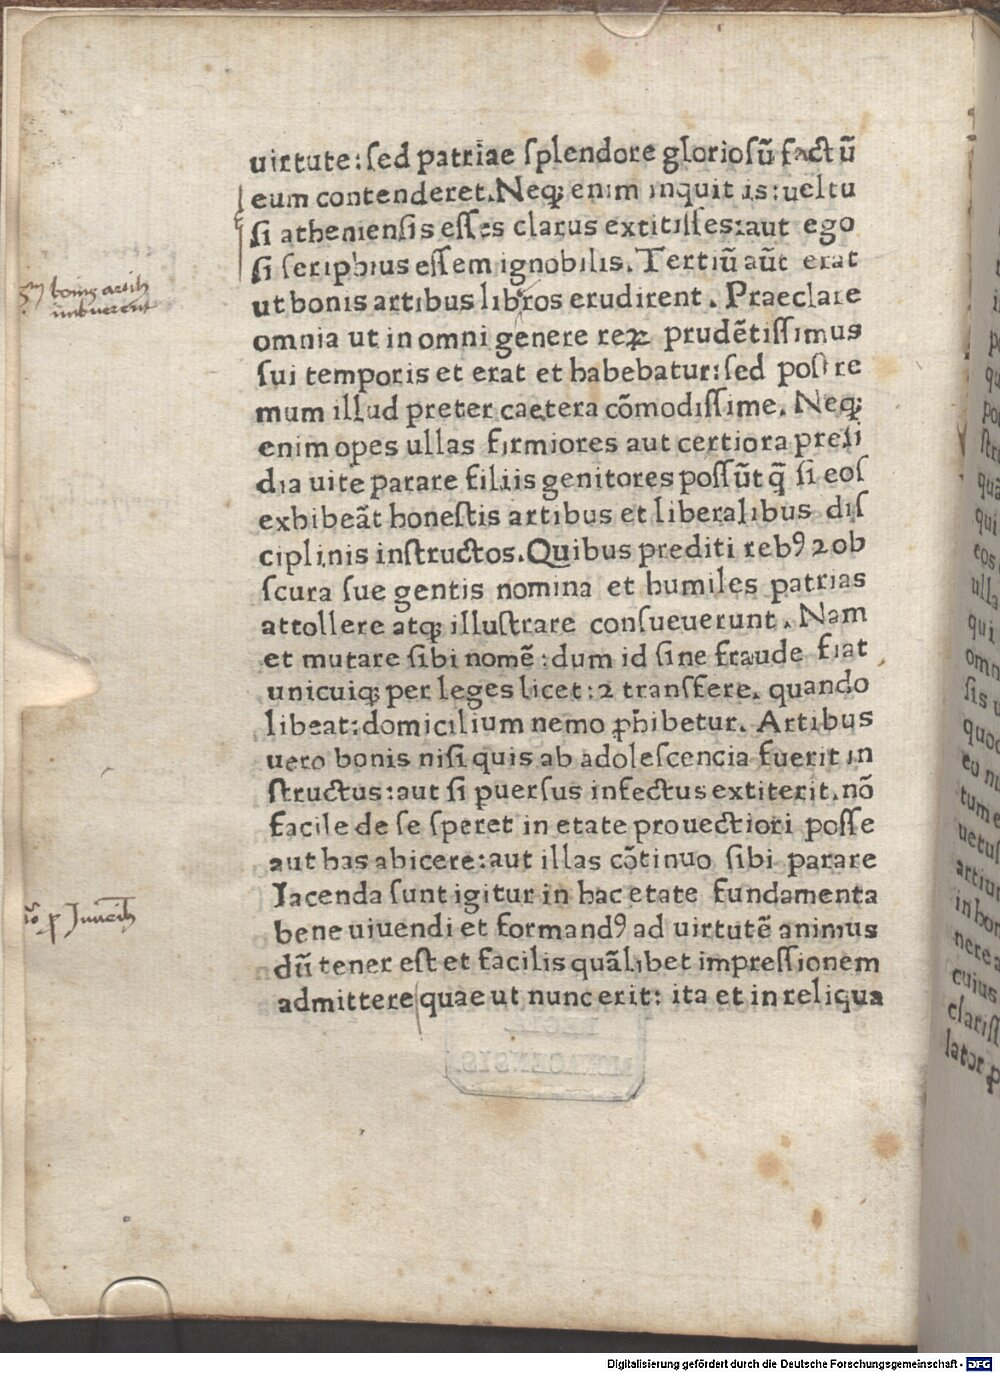 uirtute:ſed patriae ſplendore glorioſũ factũ
eum contenderet.Neqꝫ enim inquit is:ueltu
ſi athenienſis eſſes clarus extitiſſes:aut ego
ſi ſeriphius eſſem ignobilis. Tertiũ aũt erat
3m bonis artib
imbuerent
ut bonis artibus libros erudirent. Praeclare
omnia ut in omni genere reꝝ prudẽtiſſimus
ſui temporis et erat et habebatur:ſed poſtre
mum illud preter caetera cõmodiſſime. Neqꝫ
enim opes ullas firmiores aut certiora preſi
dia uite parare filiis genitores poſſũt q̃ ſi eoſ
exhibeãt honeſtis artibus et liberalibus diſ
ciplinis inſtructos.Quibus prediti rebꝰ ꝛ ob
ſcura ſue gentis nomina et humiles patrias
attollere atqꝫ illuſtrare conſueuerunt. Nam
et mutare ſibi nomẽ:dum id ſine fraude fiat
unicuiqꝫ per leges licet:ꝛ transferre. quando
libeat:domicilium nemo ꝓhibetur. Artibus
uero bonis niſi quis ab adoleſcencia fuerit in
ſtructus:aut ſi puerſus infectus extiterit.nõ
facile de ſe ſperet in etate prouectiori poſſe
aut has abicere:aut illas cõtinuo ſibi parare
Iacenda ſunt igitur in hac etate fundamenta
bene uiuendi et formandꝰ ad uirtutẽ animus
dũ tener eſt et facilis quãlibet impreſſionem
admittere quae ut nunc erit: ita et in reliqua
Digitalisierung gefördert durch die Deutsche Forschungsgemeinschaft - DFG